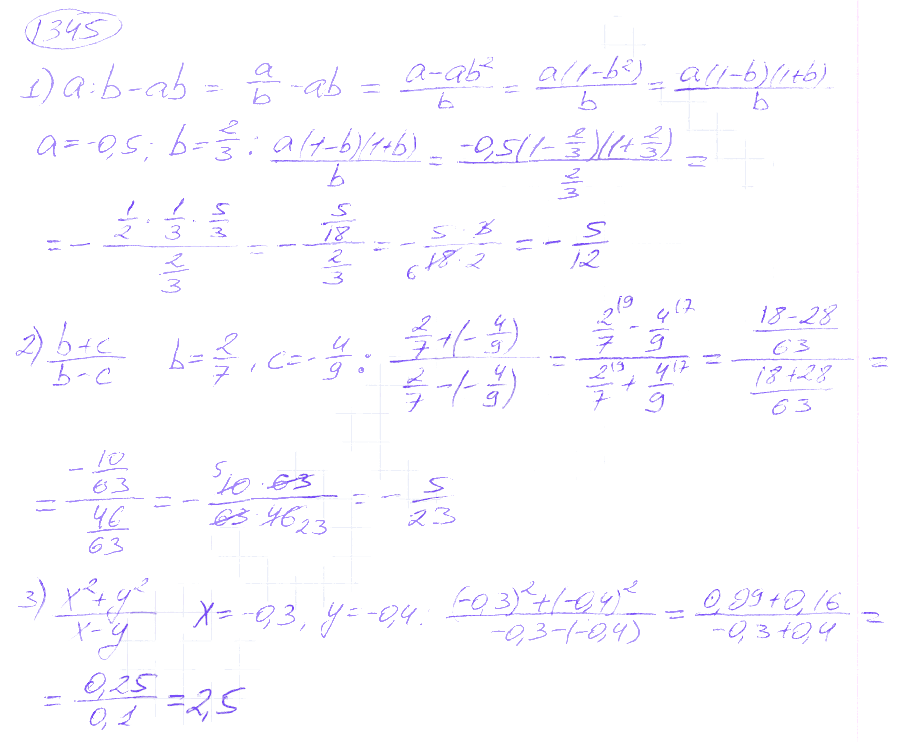 1345
1) a:b-ab = a/b - ab = (a-ab²)/b = a(1-b²)/b = a(1-b)(1+b)/b
a=-0,5; b=2/3: a(1-b)(1+b)/b = -0,5(1-2/3)(1+2/3)/(2/3) =
= - (1/2 · 1/3 · 5/3)/(2/3) = - (5/18)/(2/3) = - (5 · 3)/(6 18 · 2) = - 5/12
2) (b+c)/(b-c) b=2/7, c=-4/9: (2/7+(-4/9))/(2/7-(-4/9)) = (2/7 |9 - 4/9 |7)/(2/7 |9 + 4/9 |7) = ((18-28)/63)/((18+28)/63) =
= (-10/63)/(46/63) = - (5 10 · 63)/(63 · 46 23) = - 5/23
3) (x²+y²)/(x-y) x=-0,3, y=-0,4: ((-0,3)²+(-0,4)²)/(-0,3-(-0,4)) = (0,09+0,16)/(-0,3+0,4) =
= 0,25/0,1 = 2,5